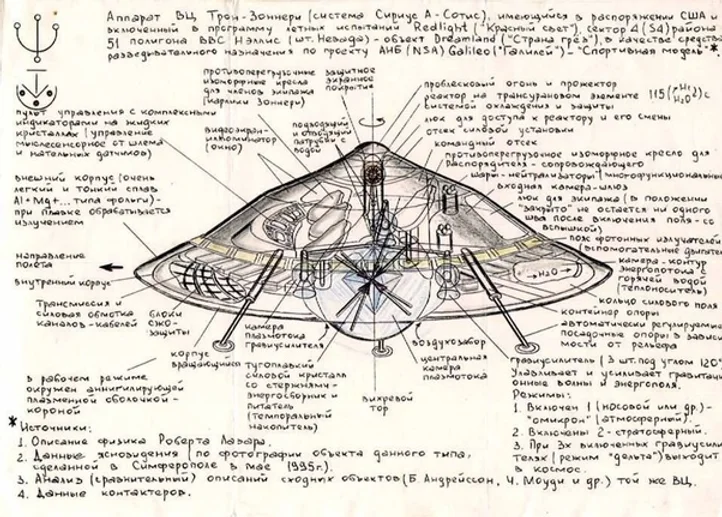 Аппарат ВЦ Трон-Зоннери (система Сириус А-Сотис), имеющийся в распоряжении США и
включенный в программу летных испытаний Redlight ("Красный свет"), сектор 4 (S4) района
51 полигона ВВС Нэллис (шт. Невада) - объект Dreamland ("Страна грез"), в качестве средства
разведывательного назначения по проекту АНБ (NSA) Galileo ("Галилей") - "Спортивная модель" *.
противоперегрузочные
изоморные кресла
для членов экипажа
(карлики Зоннери)
защитное
экранное
покрытие
проблесковый огонь и прожектор
реактор на трансурановом элементе 115
системой охлаждения и защиты
люк для доступа к реактору и его смены
отсек силовой установки
командный отсек
противоперегрузочное изоморное кресло для
распорядителя - сопровождающего
шары-нейтрализаторы (многофункциональные
входная камера-шлюз
люк для экипажа (в положении
"закрыто" не остается ни одного
шва после включения поля-со
вспышкой)
пояс фотонных излучателей
(вспомогательные двигатели
камера-контур
энергопотока с
горячей водой
(теплоноситель)
кольцо силового поля
контейнер опоры
автоматически регулируемые
посадочные опоры в зависи
мости от рельефа
пульт управления с комплексными
индикаторами на жидких
кристаллах (управление
мыслесенсорное от шлема
и нательных датчиков)
видеоэкран-
иллюминатор
(окно)
подводящий
и отводящий
патрубки с
водой
внешний корпус (очень
легкий и тонкий сплав
Al+Mg+... типа фольги)-
при плавке обрабатывается
излучением
направление
полета
внутренний корпус
H₂O
Трансмиссия и
силовая обмотка
каналов-кабелей
блоки
СЖО-
защиты
корпус
вращающийся
камера
плазмотока
гравиусилителя
тугоплавкий
силовой кристалл
со стержнями-
энергосборник и
питатель
(темпоральный
накопитель)
вихревой
тор
воздухозабор
центральная
камера
плазмотока
в рабочем режиме
окружен аннигилирующей
плазменной оболочкой-
короной
гравиусилитель (3 шт. под углом 120°
Улавливает и усиливает гравитаци
онные волны и энергополя.
Режимы:
1. Включен 1 (носовой или др.)-
"омикрон" (атмосферный).
2. Включены 2 - стратосферный.
3. При 3х включенных гравиусили
телях (режим "дельта") выходит
в космос.
* Источники:
1. Описание физика Роберта Лазара.
2. Данные ясновидения (по фотографии объекта данного типа,
сделанной в Симферополе в мае 1995г.).
3. Анализ (сравнительный) описаний сходных объектов (Б. Андрейссон, Ч. Моуди и др.) той же ВЦ.
4. Данные контактеров.